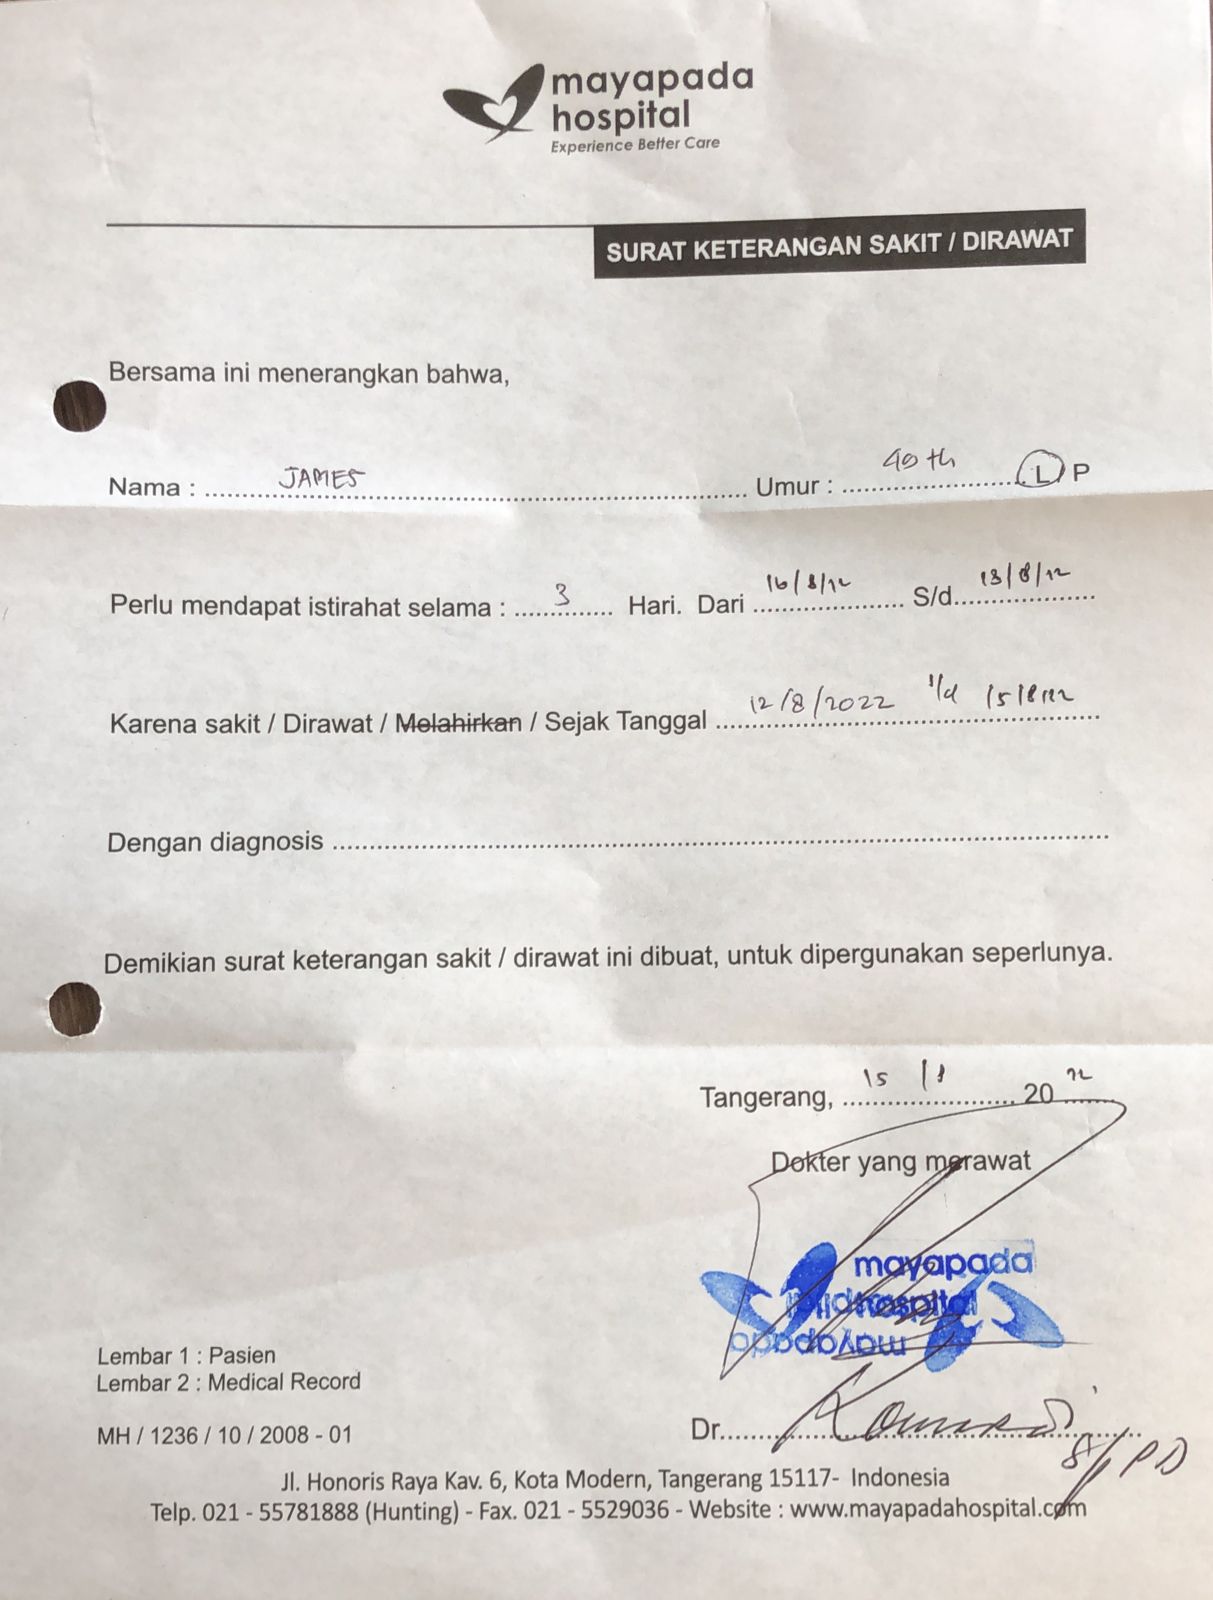 mayapada
hospital
Experience Better Care
SURAT KETERANGAN SAKIT / DIRAWAT
Bersama ini menerangkan bahwa,
Nama : JAMES Umur : 40 th L P
Perlu mendapat istirahat selama : 3 Hari. Dari 16/8/22 S/d 18/8/22
Karena sakit / Dirawat / Melahirkan / Sejak Tanggal 12/8/2022 s/d 15/8/22
Dengan diagnosis
Demikian surat keterangan sakit / dirawat ini dibuat, untuk dipergunakan seperlunya.
Tangerang, 15/8 2022
Dokter yang merawat
mayapada
hospital
mayapada
hospital
Lembar 1 : Pasien
Lembar 2 : Medical Record
MH / 1236 / 10 / 2008 - 01
Dr. SpPD
Jl. Honoris Raya Kav. 6, Kota Modern, Tangerang 15117- Indonesia
Telp. 021 - 55781888 (Hunting) - Fax. 021 - 5529036 - Website : www.mayapadahospital.com